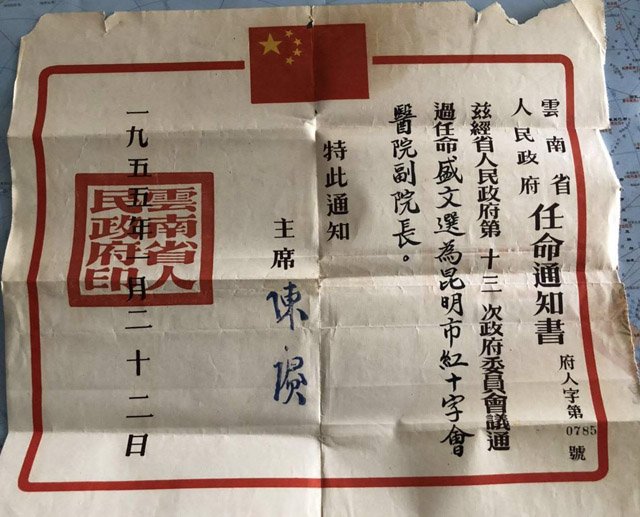 雲南省
人民政府
任命通知書
府人字第0785號
茲經省人民政府第十三次政府委員會議通
過任命盛文選為昆明市紅十字會
醫院副院長。
特此通知
主席 陳
一九五五年一月二十二日
雲南省人
民政府印